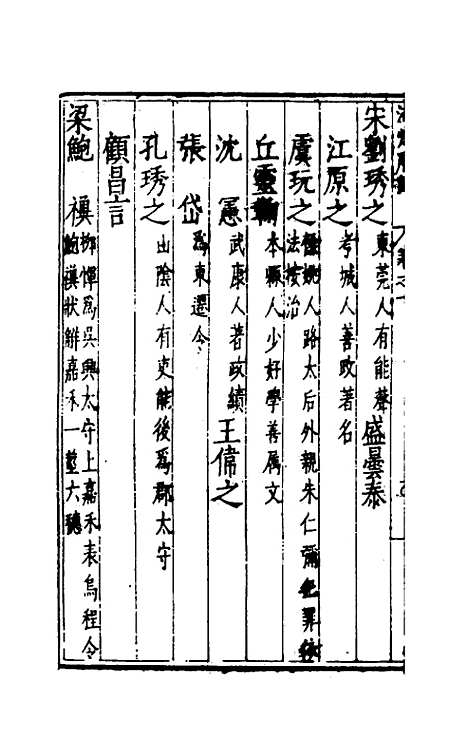 宋劉琇之東莞人有能聲 盛曇泰
江原之考城人善政著名
虞玩之餘姚人路太后外親朱仁彌犯罪依
法按治
丘靈鞠本縣人少好學善屬文
沈憲武康人著政績 王偹之
張岱爲東遷令
孔琇之山陰人有吏能後爲郡太守
顧昌言
梁鮑䙰柳惲爲吳興太守上嘉禾表烏程令
鮑䙰狀解嘉禾一莖六穗